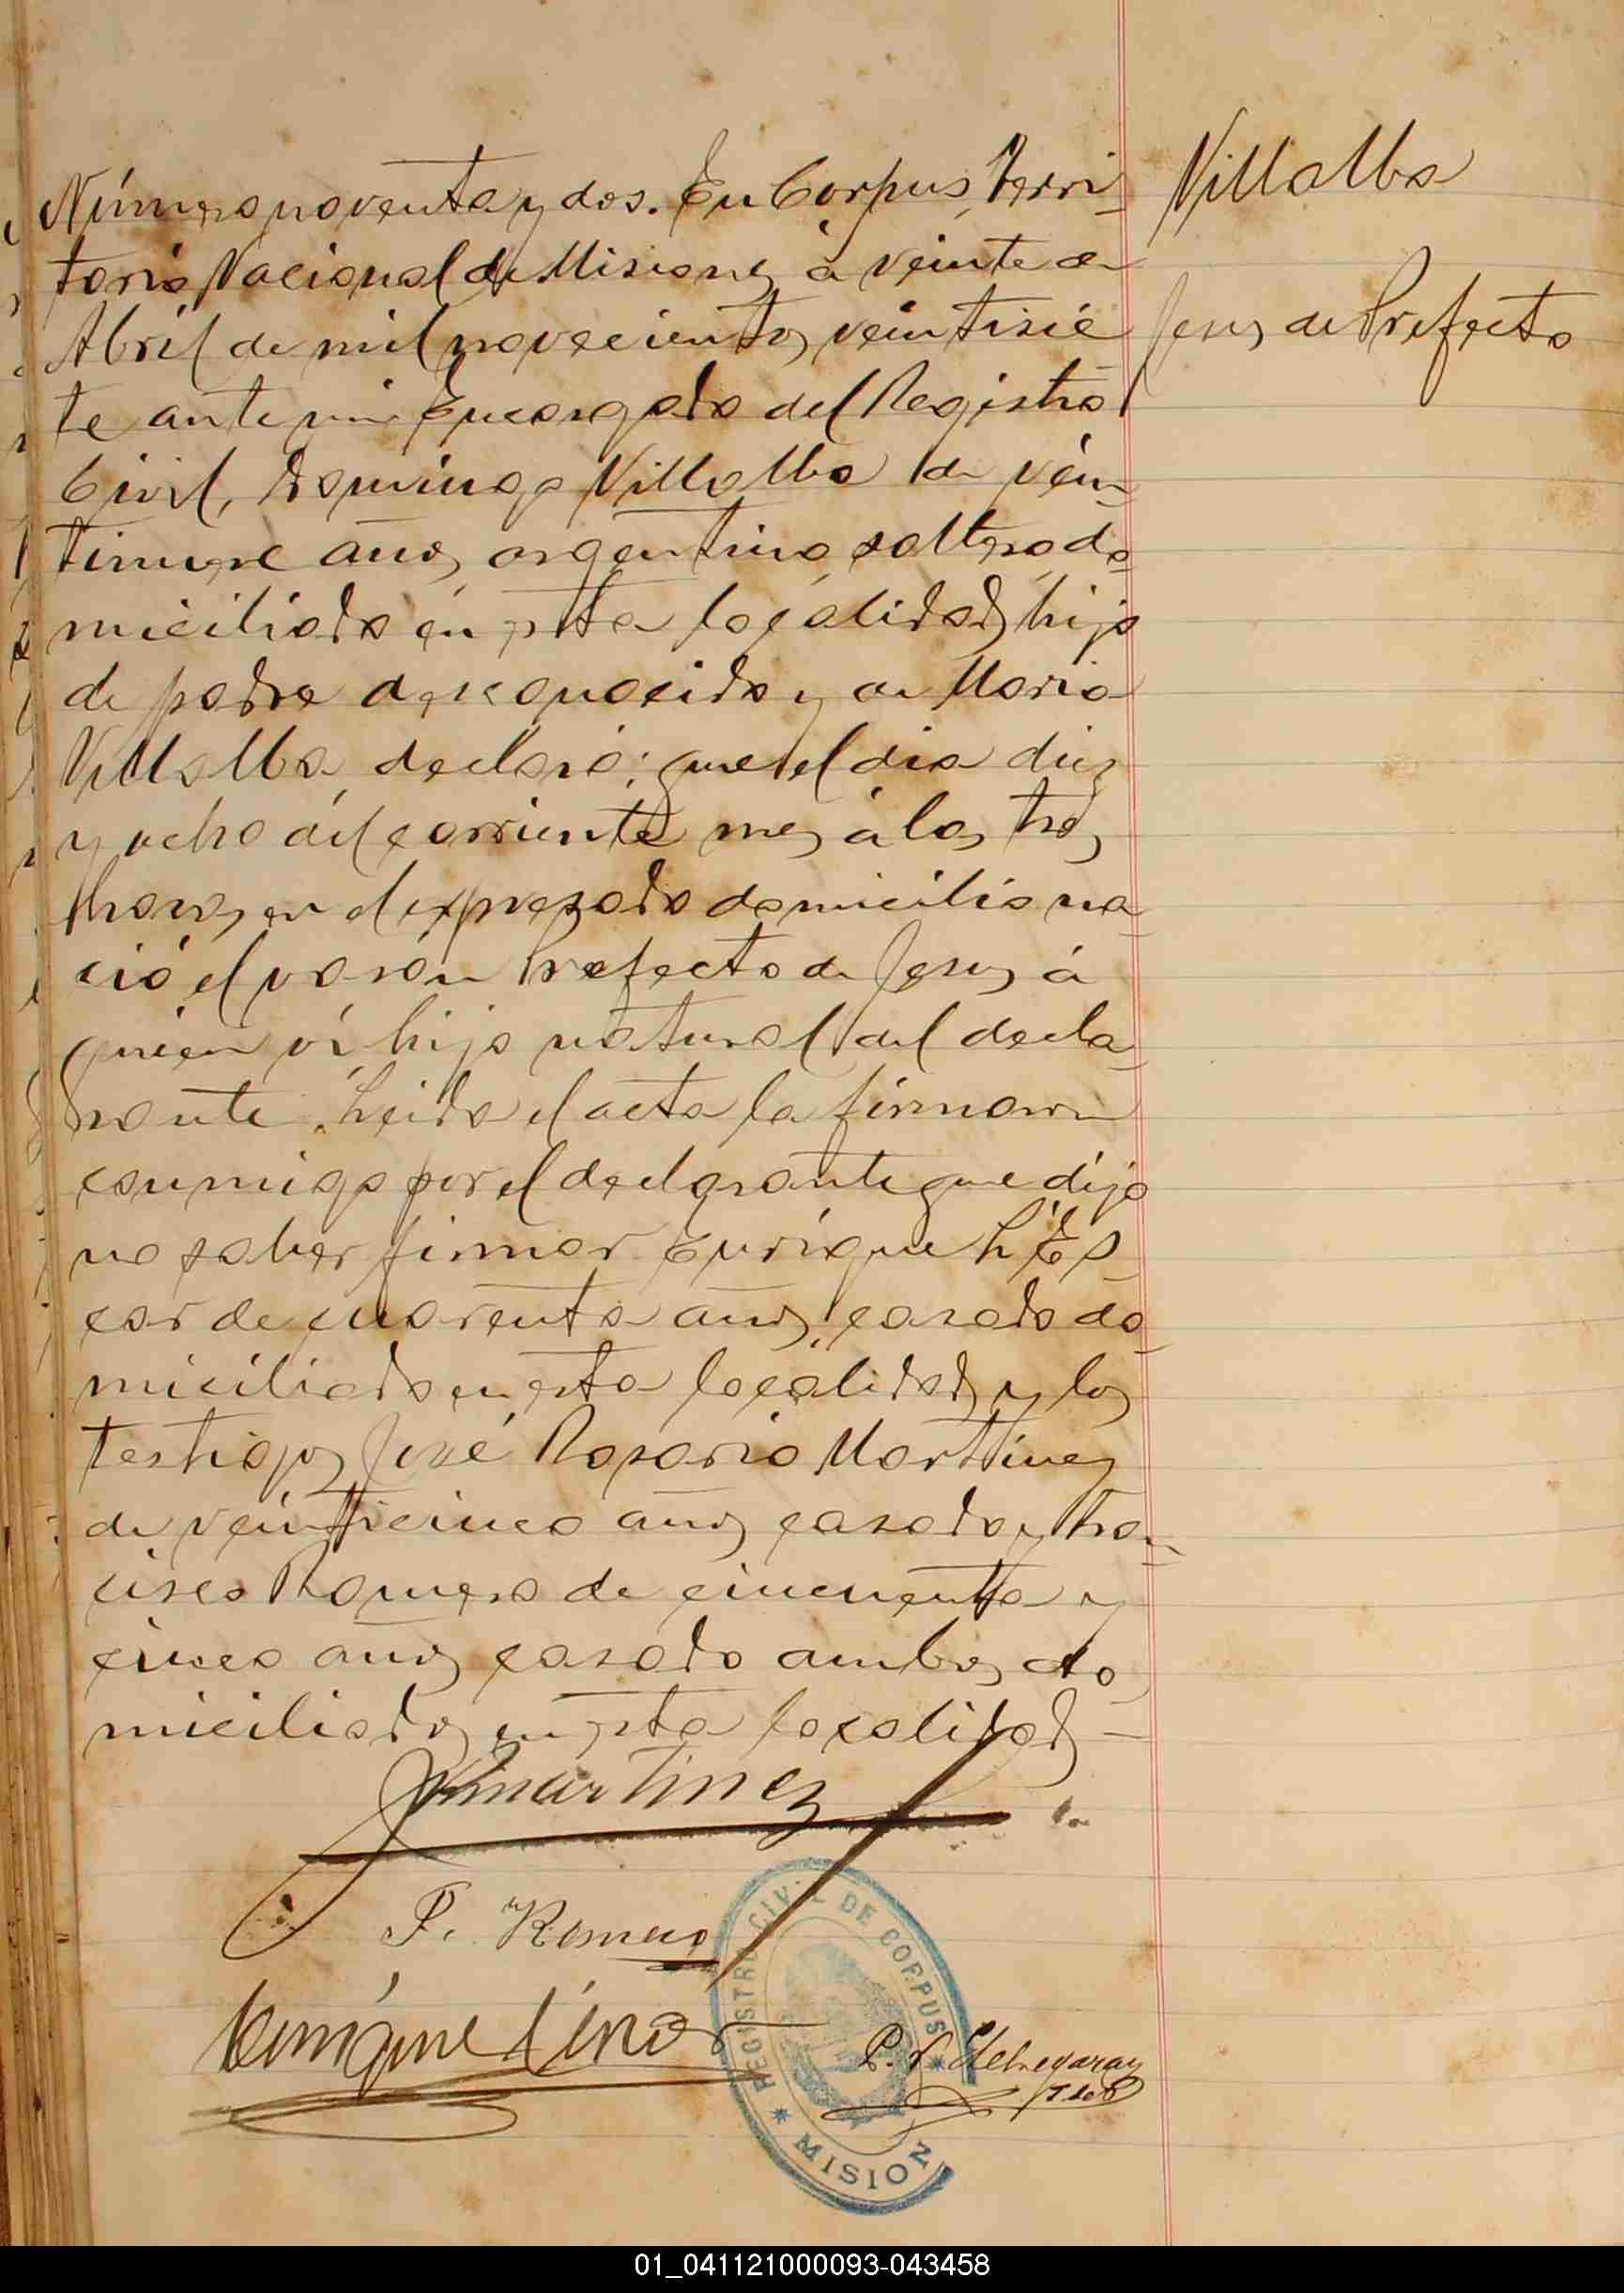 Villalba
Jesus de Prefecto
Número noventa y dos. En Corpus, Terri-
torio Nacional de Misiones á veinte de
Abril de mil novecientos veintisie
te ante mi Encargado del Registro
Civil, Domingo Villalba de vein-
tinueve años, argentino, soltero, do-
miciliado en esta localidad, hijo
de padre desconocido y de Maria
Villalba, declaró: que el dia diez
y ocho del corriente mes á las tres
horas, en el expresado domicilio na-
ció el varón Prefecto de Jesus á
quien ví hijo natural del decla-
rante. Leida el acta la firmaron
conmigo por el declarante que dijo
no saber firmar Enrique
de cuarenta años, casado do-
miciliado en esta localidad y los
testigos José Rosario Martinez
de veinticinco años casado y Fran-
cisco Romero de cincuenta y
cinco años casado ambos do-
miciliados en esta localidad —
Martinez
F. Romero
Enrique
P. Etchegaray
REGISTRO CIVIL DE CORPUS
MISION
01_041121000093-043458